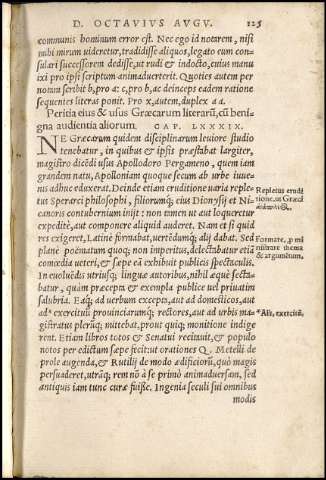 D. OCTAVIVS AVGV. 125
communis hominum error est. Nec ego id notarem, nisi
mihi mirum uideretur, tradidisse aliquos, legato eum con-
sulari successorem dedisse, ut rudi & indocto, cuius manu
ixi pro ipsi scriptum animaduerterit. Quoties autem per
notam scribit b, pro a: c, pro b, ac deinceps eadem ratione
sequentes literas ponit. Pro x, autem, duplex aa.
Peritia eius & usus Græcarum literarū, cū beni-
gna audientia aliorum. CAP. LXXXIX.
NE Græcarum quidem disciplinarum leuiore studio
tenebatur, in quibus & ipsis præstabat largiter,
magistro dicēdi usus Apollodoro Pergameno, quem iam
grandem natu, Apolloniam quoque secum ab urbe iuue-
nis adhuc eduxerat. Deinde etiam eruditione uaria reple-
tus Sperarci philosophi, filiorumq́; eius Dionysij et Ni-
canoris contubernium inijt: non tamen ut aut loqueretur
expeditè, aut componere aliquid auderet. Nam et si quid
res exigeret, Latinè formabat, uertēdumq́; alij dabat. Sed
planè poëmatum quoq; non imperitus, delectabatur etiā
comœdia ueteri, & sæpe eā exhibuit publicis spectaculis.
In euoluēdis utriusq; linguæ autoribus, nihil æquè secta-
batur, quàm præcepta & exempla publicè uel priuatim
salubria. Eaq́; ad uerbum excepta, aut ad domesticos, aut
ad* exercituū prouinciarumq́; rectores, aut ad urbis ma-
gistratus plerūq; mittebat, prout quiq; monitione indige
rent. Etiam libros totos & Senatui recitauit, & populo
notos per edictum sæpe fecit: ut orationes Q. Metelli de
prole augenda, & Rutilij de modo ædificiorū, quò magis
persuaderet, utrāq; rem nō à se primò animaduersam, sed
antiquis iam tunc curæ fuisse. Ingenia seculi sui omnibus
modis
Repletus erudi
tione, ut Græci
Formare, p mi
nistrare thema
& argumētum.
*Aliâs, exercitū.